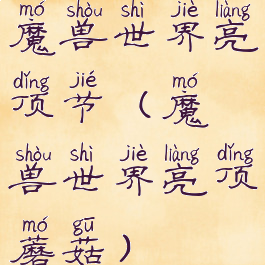 mó shòu shì jiè liàng
魔兽世界亮
dǐng jié mó
顶节(魔
shòu shì jiè liàng dǐng
兽世界亮顶
mó gū
蘑菇)